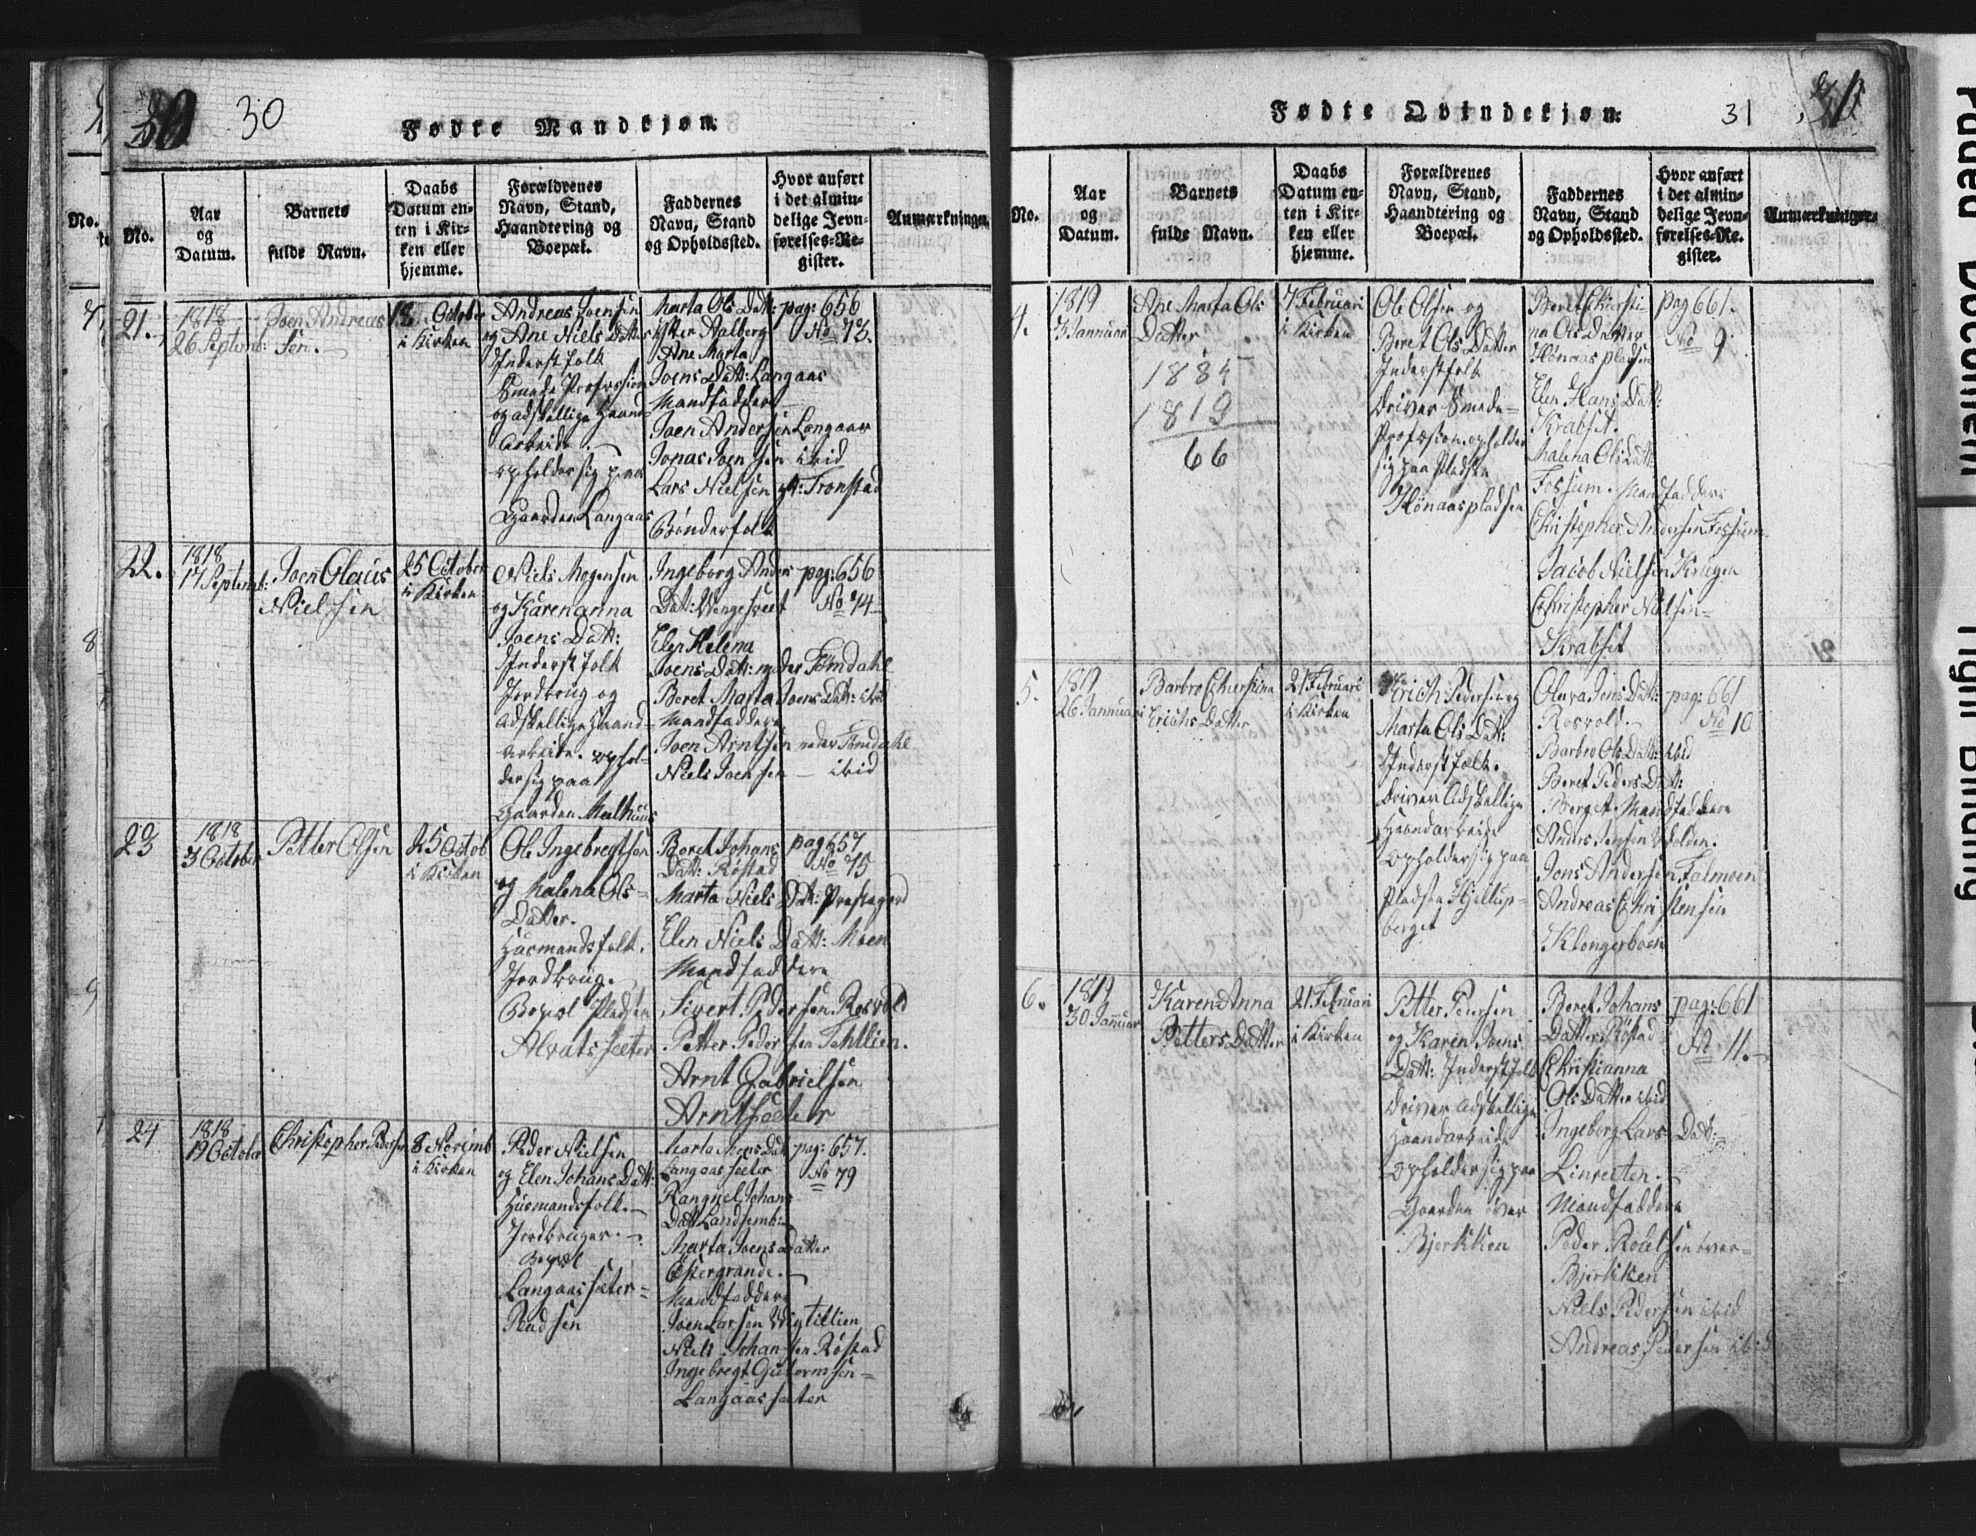 30
Fødte Mandkjøn.
No.
Aar
og
Datum.
Barnets
fulde Navn.
Daabs
Datum en-
ten i Kir-
ken eller
hjemme.
Forældrenes
Navn, Stand,
Haandtering og
Boepæl.
Faddernes
Navn, Stand
og Opholdssted.
Hvor anført
i det almin-
delige Jevn-
førelses-Re-
gister.
Anmærkninger.
21.
1818
26 Septemb:
Joen Andreas
sen.
18 October
i Kirken
Andreas Joensen
og Ane Niels Datter
Inderstfolk
Smede Profession
og adskellige Haand-
arbeide.
opholder sig paa
Gaarden Langaas
Marta Ols Dat:
Ytter Aalberg
Ane Marta
Joens Datt: Langaas
Mandfaddere
Joen Andersen Langaas
Jonas Joensen ibid
Lars Nielsen Tronstad
Bønderfolk
pag: 656
No 73.
22.
1818
17 Septemb:
Joen Olaus
Nielsen
25 October
i Kirken
Niels Mogensen
og Karenanna
Joens Datt:
Inderstfolk
Jordbrug og
adskellige Haand-
arbeide. ophol-
der sig paa
Gaarden Melhuus
Ingeborg Anders
Dat:
Elen Helena
Joens Datt: neder Fømdahl
Beret Marta Joens Datt: ibid
Mandfaddere
Joen Arntsen neder Fømdahl
Niels Joensen — ibid
pag: 656
No 74
23
1818
3 October
Petter Olsen
25 Octob
i Kirken
Ole Ingebregtsen
og Malena Ols-
Datter.
Huusmandsfolk.
Jordbrug.
Boepæl Pladsen
Alvatsseeter
Beret Johans
Datt: Røstad
Marta Niels Dat: Prestegaard
Elen Niels Datt: Moen
Mandfaddere
Sivert Pedersen Rosvold
Petter Pedersen Tehllien.
Arnt Gabrielsen
Arntseeter
pag 657
No 75
24
1818
19 October
Christopher Pedersen
8 Novemb
i Kirken
Peder Nielsen
og Elen Johans Datt:
Huusmandsfolk.
Jordbruger.
Boepæl
Langaasseter-
Pladsen
Marta Mons Dat
Langaasseeter
Rangnel Johans
Datt Landsemb:
Marta Joens Datter
Østergrande.
Mandfaddere
Joen Larsen Vigtillien
Niels Johansen Røstad
Ingebregt Guttormsen
Langaasseeter
pag: 657.
No 79
Fødte Qvindekjøn.
31
No.
Aar
og
Datum.
Barnets
fulde Navn.
Daabs
Datum en-
ten i Kir-
ken eller
hjemme.
Forældrenes
Navn, Stand,
Haandtering og
Boepæl.
Faddernes
Navn, Stand
og Opholdssted.
Hvor anført
i det almin-
delige Jevn-
førelses-Re-
gister.
Anmærkninger.
4.
1819
3 Januar
Ane Marta Ols
Datter
1885
1819
66
7 Februari
i Kirken
Ole Olsen og
Beret Ols Datter
Inderstfolk
driver Smede-
Profession. opholder
sig paa Pladsen
Hønaaspladsen
Beret Chersti-
na Ols Datter
Hønaaspladsen
Elen Hans Dat:
Krabset.
Malena Ols Datt:
Fossum. Mandfaddere
Christopher Andersen Fossum.
Jacob Nielsen Krugen
Christopher Nielsen-
Krabset
pag 661.
No 9
5.
1819
26 Januari
Barbro Cherstina
Erichs Datter
21 Februari
i Kirken
Erich Pedersen og
Marta Ols Dat:
Inderstfolk.
driver adskellige
Haandarbeide
opholder sig paa
Pladsen Hjellup-
berget
Oluva Jens Datt:
Rosvold.
Barbro Ols Datt: ibid
Beret Peders Datt:
Berget. Mandfaddere
Anders Volden.
Jens Andersen Folmoen
Andreas Christensen
Klongerboen
pag: 661
No 10
6.
1819
30 Januar
Karen Anna
Petters Datter
21 Februari
i Kirken
Petter Pedersen
og Karen Joens
Datt: Inderstfolk
driver adskellige
Haandarbeide
opholder sig paa
Gaarden over
Bjerkken
Beret Johans
Datter Røstad
Christianna
Ols Datter ibid
Ingeborg Lars Dat:
Linreeten.
Mandfaddere
Peder Roelsen over-
Bjerkken
Niels Pedersen ibid
Andreas Pedersen ibid
pag: 661
No 11.